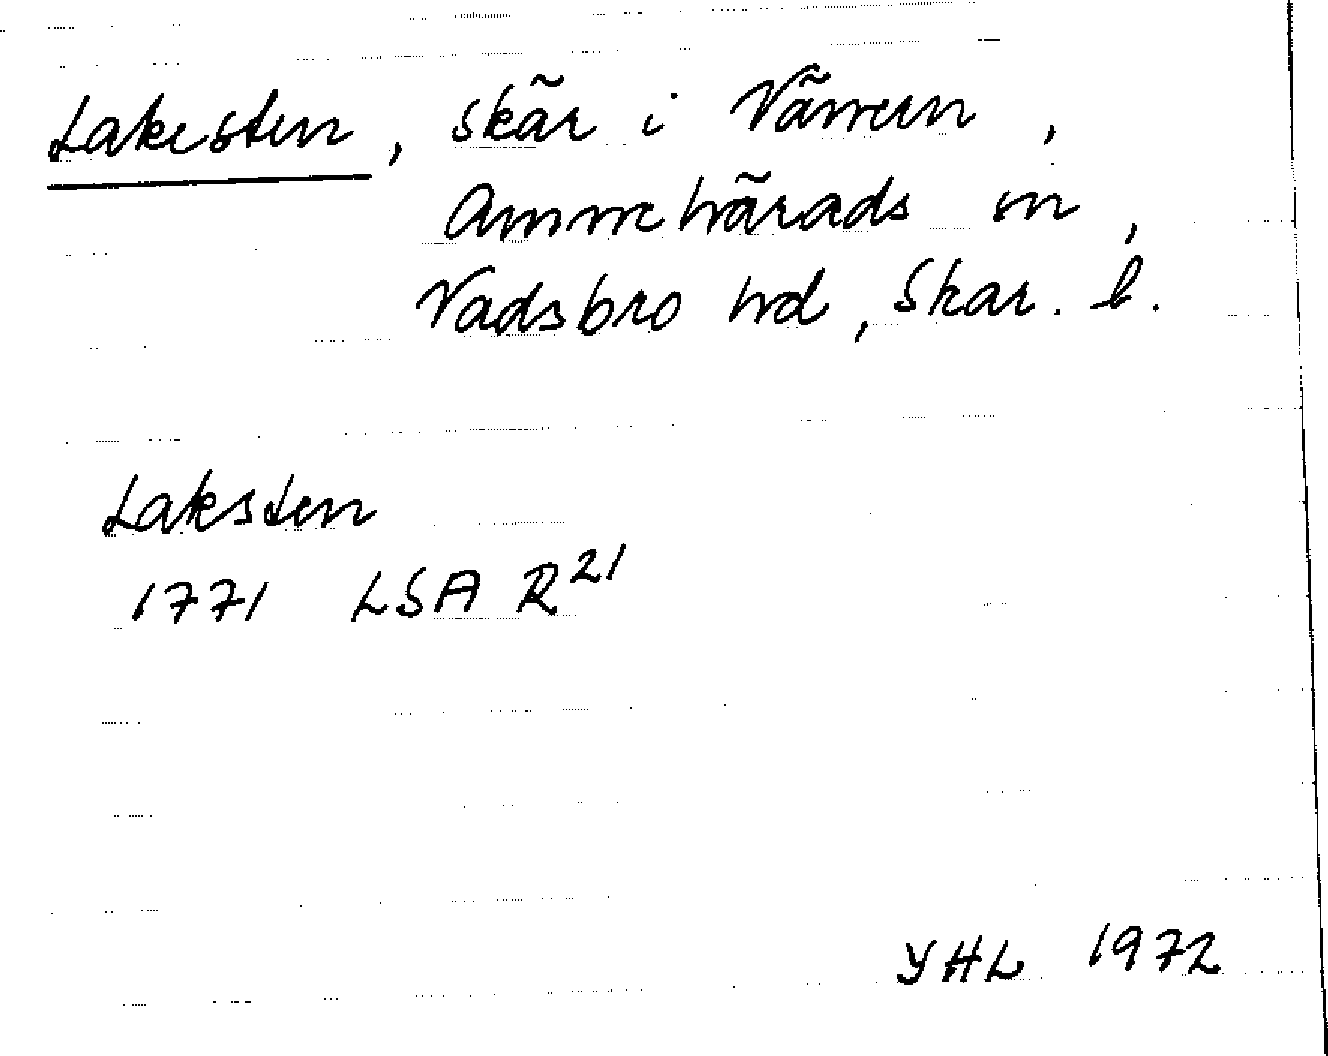 Lakesten, skär i Vänern,
Amnehärads sn,
Vadsbro hd, Skar. l.
Laksten
1771 LSA R21
YHL 1972